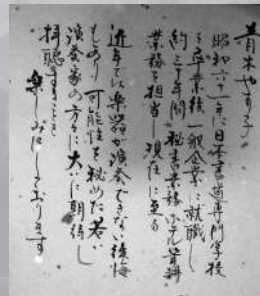 青木やす子
昭和六十一年に日本書道専門学校
を卒業後一般企業に就職し
約三十年間 秘書業務
業務を担当し現在に至る
近年では楽器が演奏できない後悔
もあり可能性を秘めた若い
演奏家の方々に大いに期待し
拝聴することを
楽しみにしております